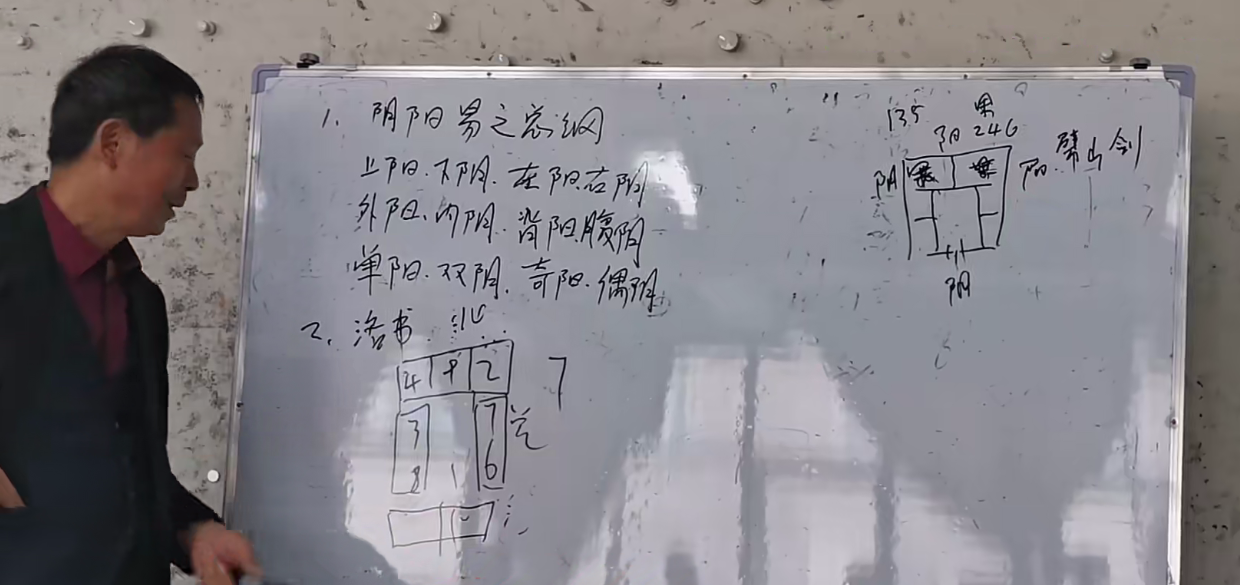 1. 阴阳易之总纲
上阳.下阴.左阳右阴
外阳.内阴.背阳腹阴
单阳.双阴.奇阳.偶阴
2.洛书
4 9 2
3 7
8 1 6
7
135
阳 246
阴
阳
劈山剑
阴